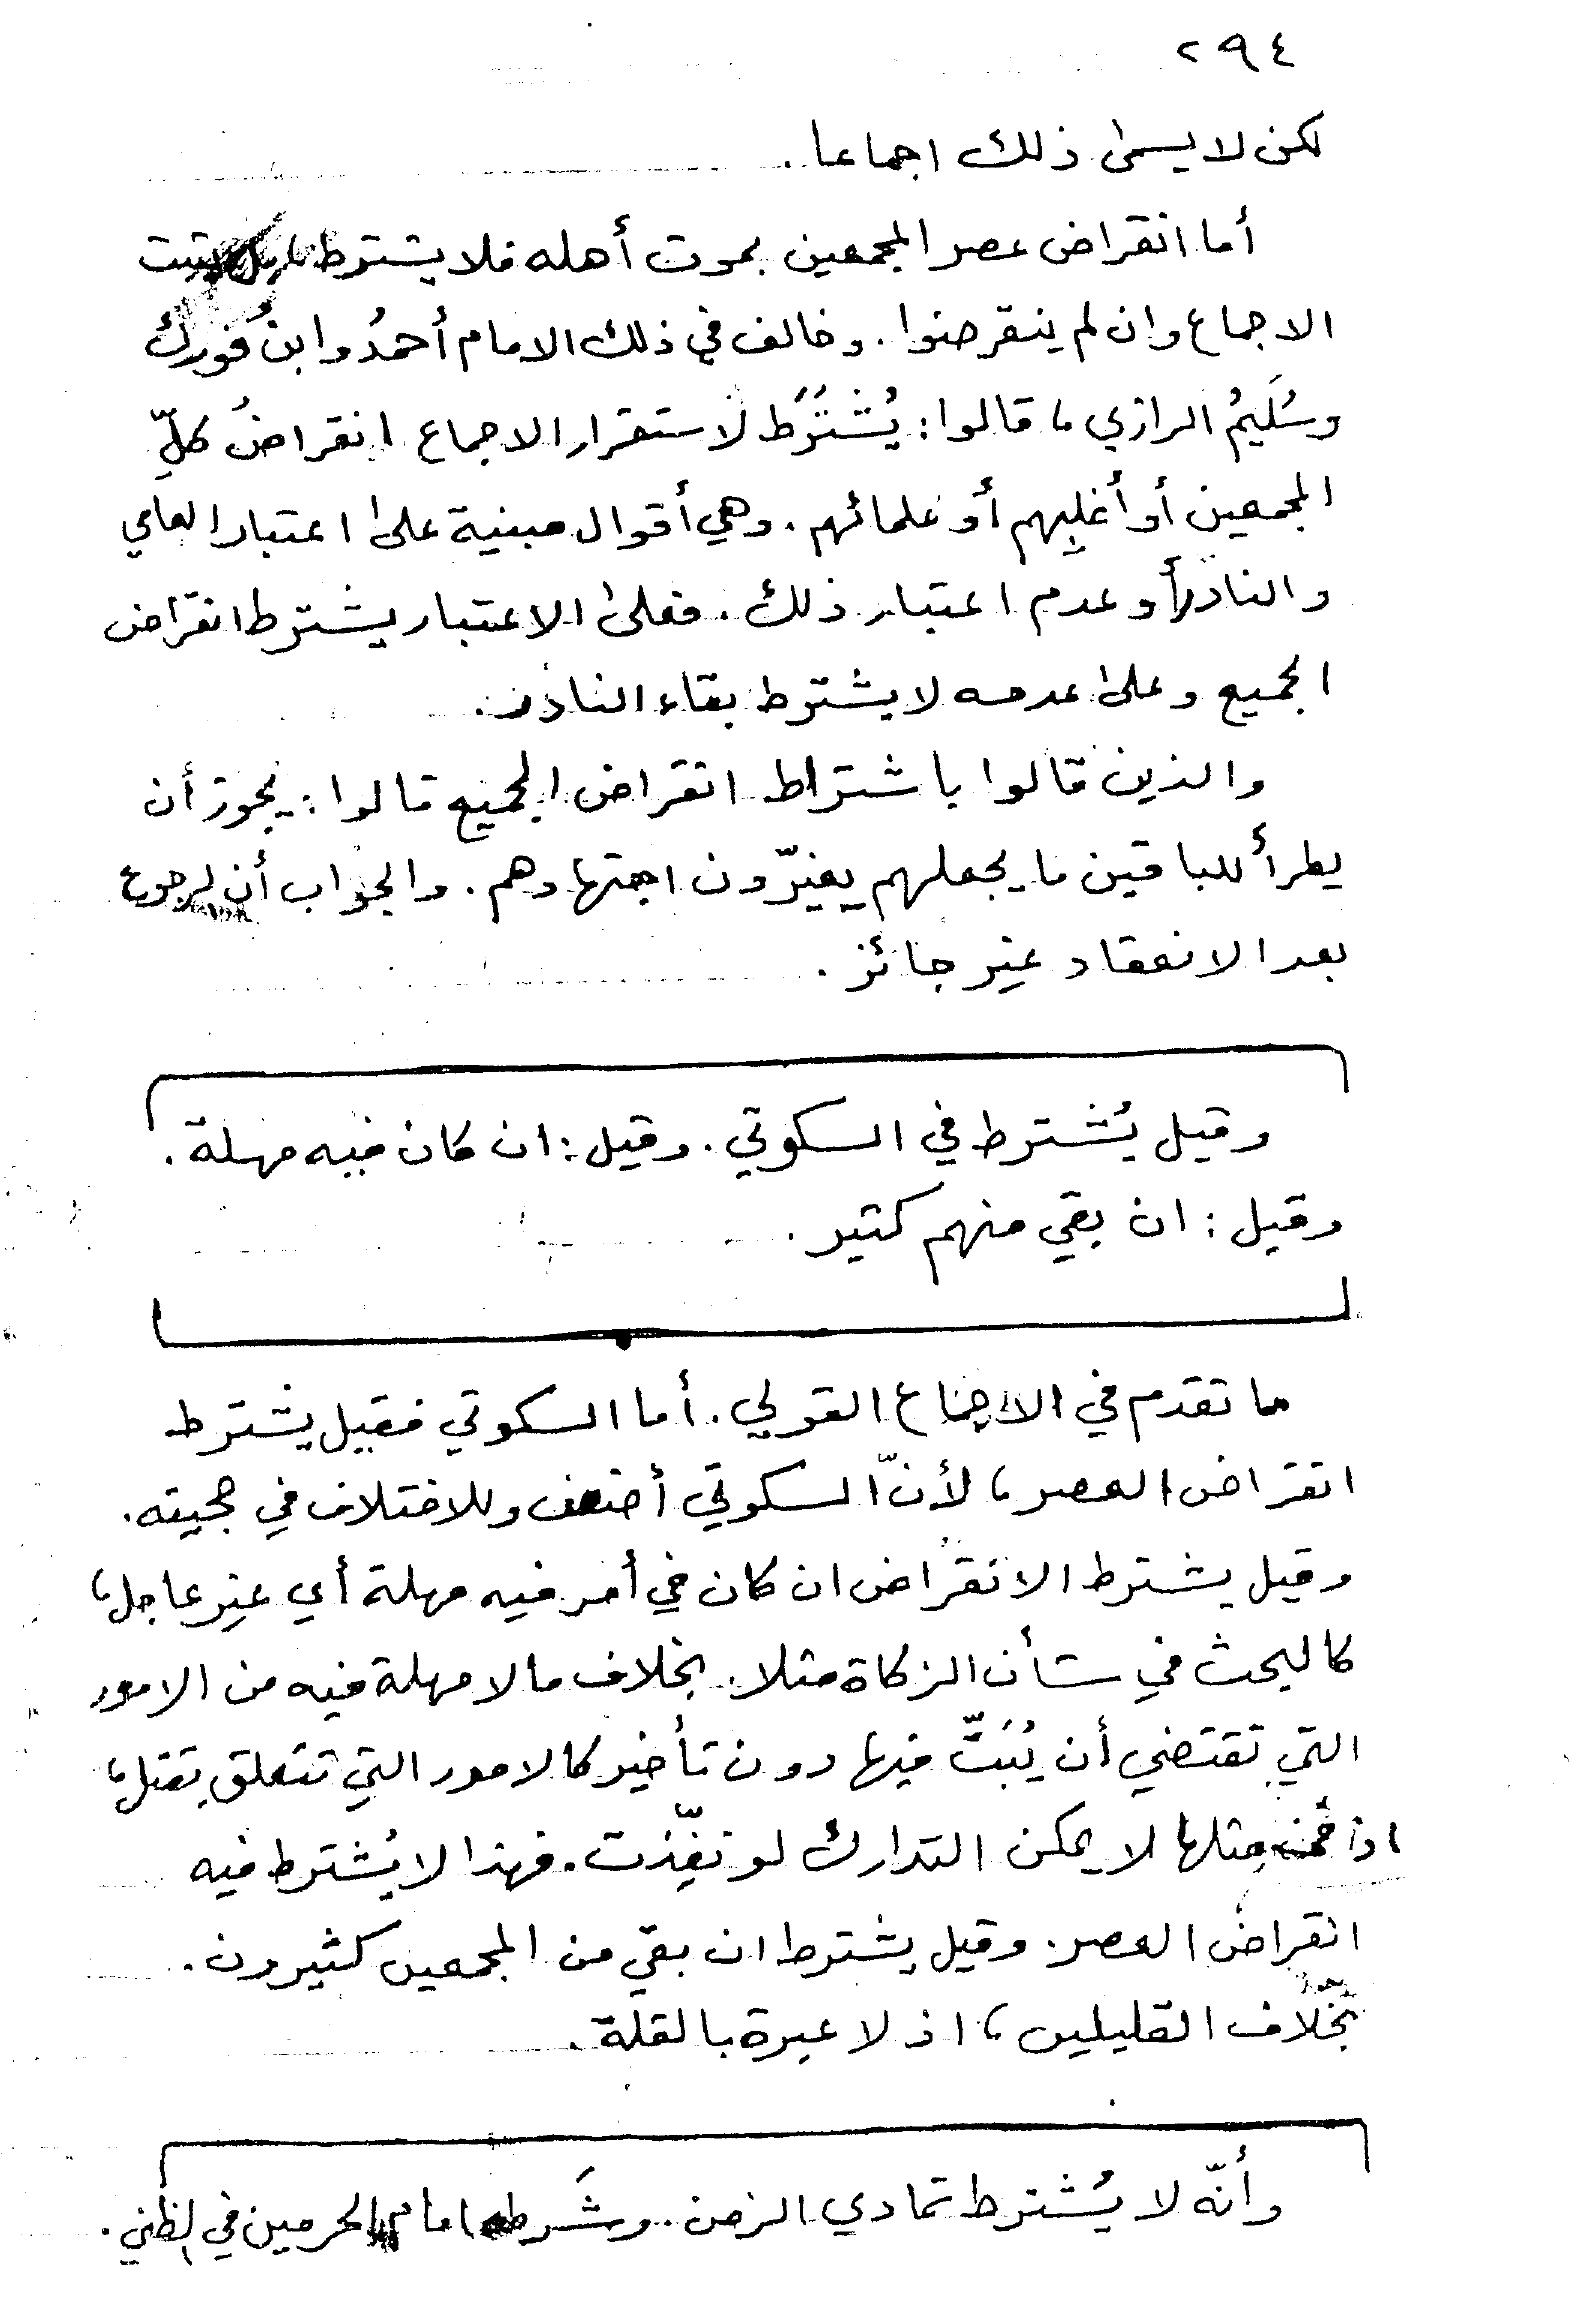 ٢٩٤
لكن لا يسمى ذلك اجماعا .
أما انقراض عصر المجمعين بموت أهله فلا يشترط ، بل يثبت
الاجماع وان لم ينقرضوا . وخالف في ذلك الامام أحمدُ وابنُ فُورك
وسُلَيمُ الرازي ، قالوا : يُشْتَرَط لاستقرار الاجماع انقراضُ كلِّ
المجمعين أو أغلبِهم أو علمائهم . وهي أقوال مبنية على اعتبار العامي
والنادر أو عدم اعتبار ذلك . فعلى الاعتبار يشترط انقراض
الجميع وعلى عدمه لا يشترط بقاء النادر .
والذين قالوا باشتراط انقراض الجميع قالوا : يجوز أن
يطرأ للباقين ما يجعلهم يغيّرون اجتهادهم . والجواب أن الرجوع
بعد الانعقاد غير جائز .
وقيل يُشترط في السكوتي . وقيل : ان كان فيه مهلة .
وقيل : ان بقي منهم كثير .
ما تقدم في الاجماع القولي . أما السكوتي فقيل يشترط
انقراض العصر ، لأنّ السكوتي أضعف وللاختلاف في حجيته .
وقيل يشترط الانقراض ان كان في أمر فيه مهلة أي غير عاجل ،
كالبحث في شأن الزكاة مثلا . بخلاف ما لا مهلة فيه من الامور
التي تقتضي أن يُبَتَّ فيها دون تأخير كالامور التي تتعلق بقتل ،
اذ مثلها لا يمكن التدارك لو نفِّذت . فهذا لا يُشترط فيه
انقراض العصر . وقيل يشترط ان بقي من المجمعين كثيرون .
بخلاف القليلين ، اذ لا عبرة بالقلة .
وأنّه لا يُشترط تمادي الزمن . وشَرطه امام الحرمين في الظني .